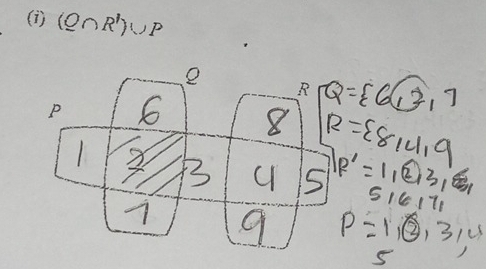 (i) (Q∩R')∪P
Q
R
P
6
8
1
2
3
4
5
7
9
Q={6,2,7
R={8,4,9
R'=1,2,3,6,
5,6,7,
P=1,2,3,4,
5